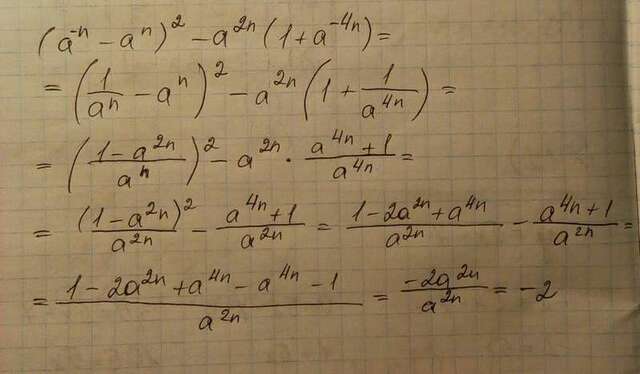 (a⁻ⁿ − aⁿ)² − a²ⁿ (1 + a⁻⁴ⁿ) =
= (1/aⁿ − aⁿ)² − a²ⁿ (1 + 1/a⁴ⁿ) =
= ((1 − a²ⁿ)/aⁿ)² − a²ⁿ · (a⁴ⁿ + 1)/a⁴ⁿ =
= (1 − a²ⁿ)²/a²ⁿ − (a⁴ⁿ + 1)/a²ⁿ = (1 − 2a²ⁿ + a⁴ⁿ)/a²ⁿ − (a⁴ⁿ + 1)/a²ⁿ =
= (1 − 2a²ⁿ + a⁴ⁿ − a⁴ⁿ − 1)/a²ⁿ = −2a²ⁿ/a²ⁿ = −2